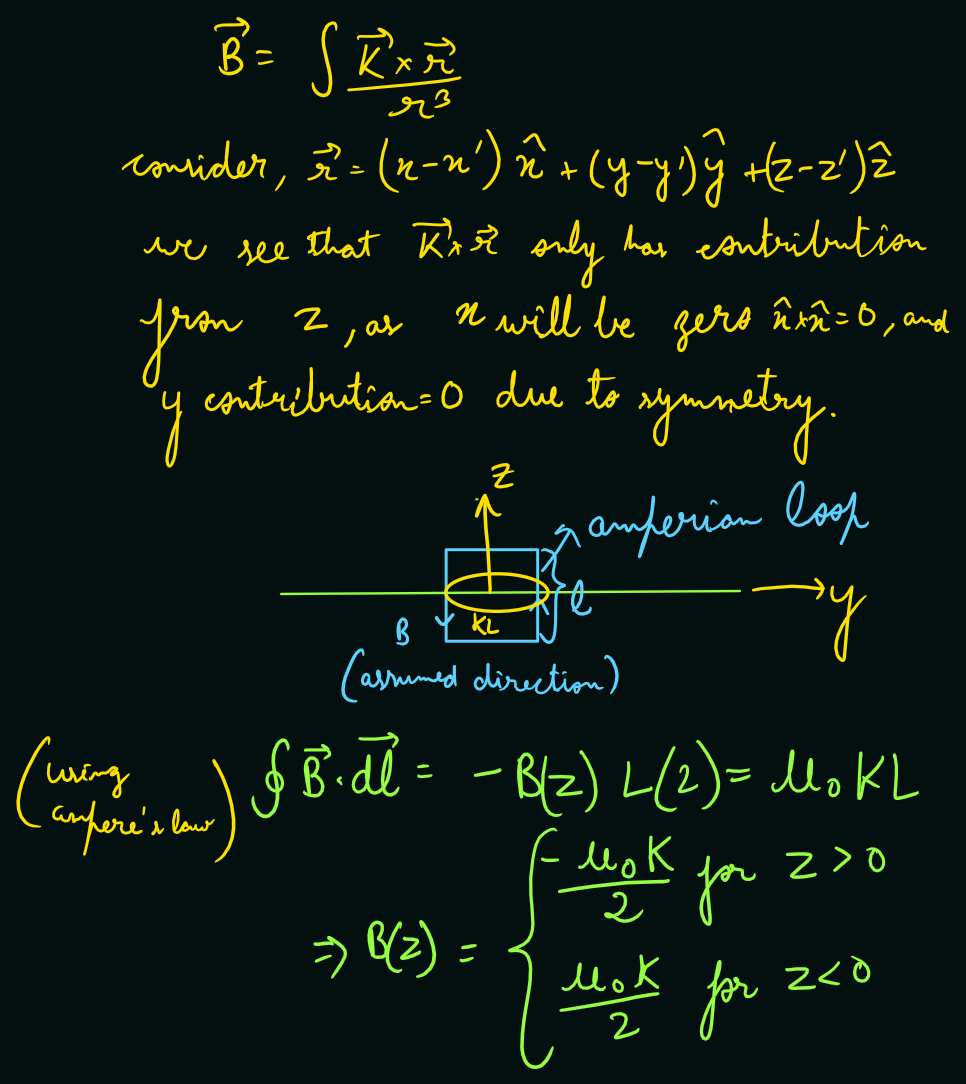 B⃗ = ∫ K⃗ × r⃗ / r³
consider, r⃗ = (x-x') x̂ + (y-y') ŷ + (z-z') ẑ
we see that K⃗ × r⃗ only has contribution
from z, as x will be zero x̂×x̂ = 0, and
y contribution = 0 due to symmetry.
z
amperian loop
l
y
B
KL
(assumed direction)
(using ampere's law) ∮ B⃗ · dl⃗ = - B(z) L(2) = μ₀ KL
⇒ B(z) = { - μ₀K / 2 for z > 0
μ₀K / 2 for z < 0